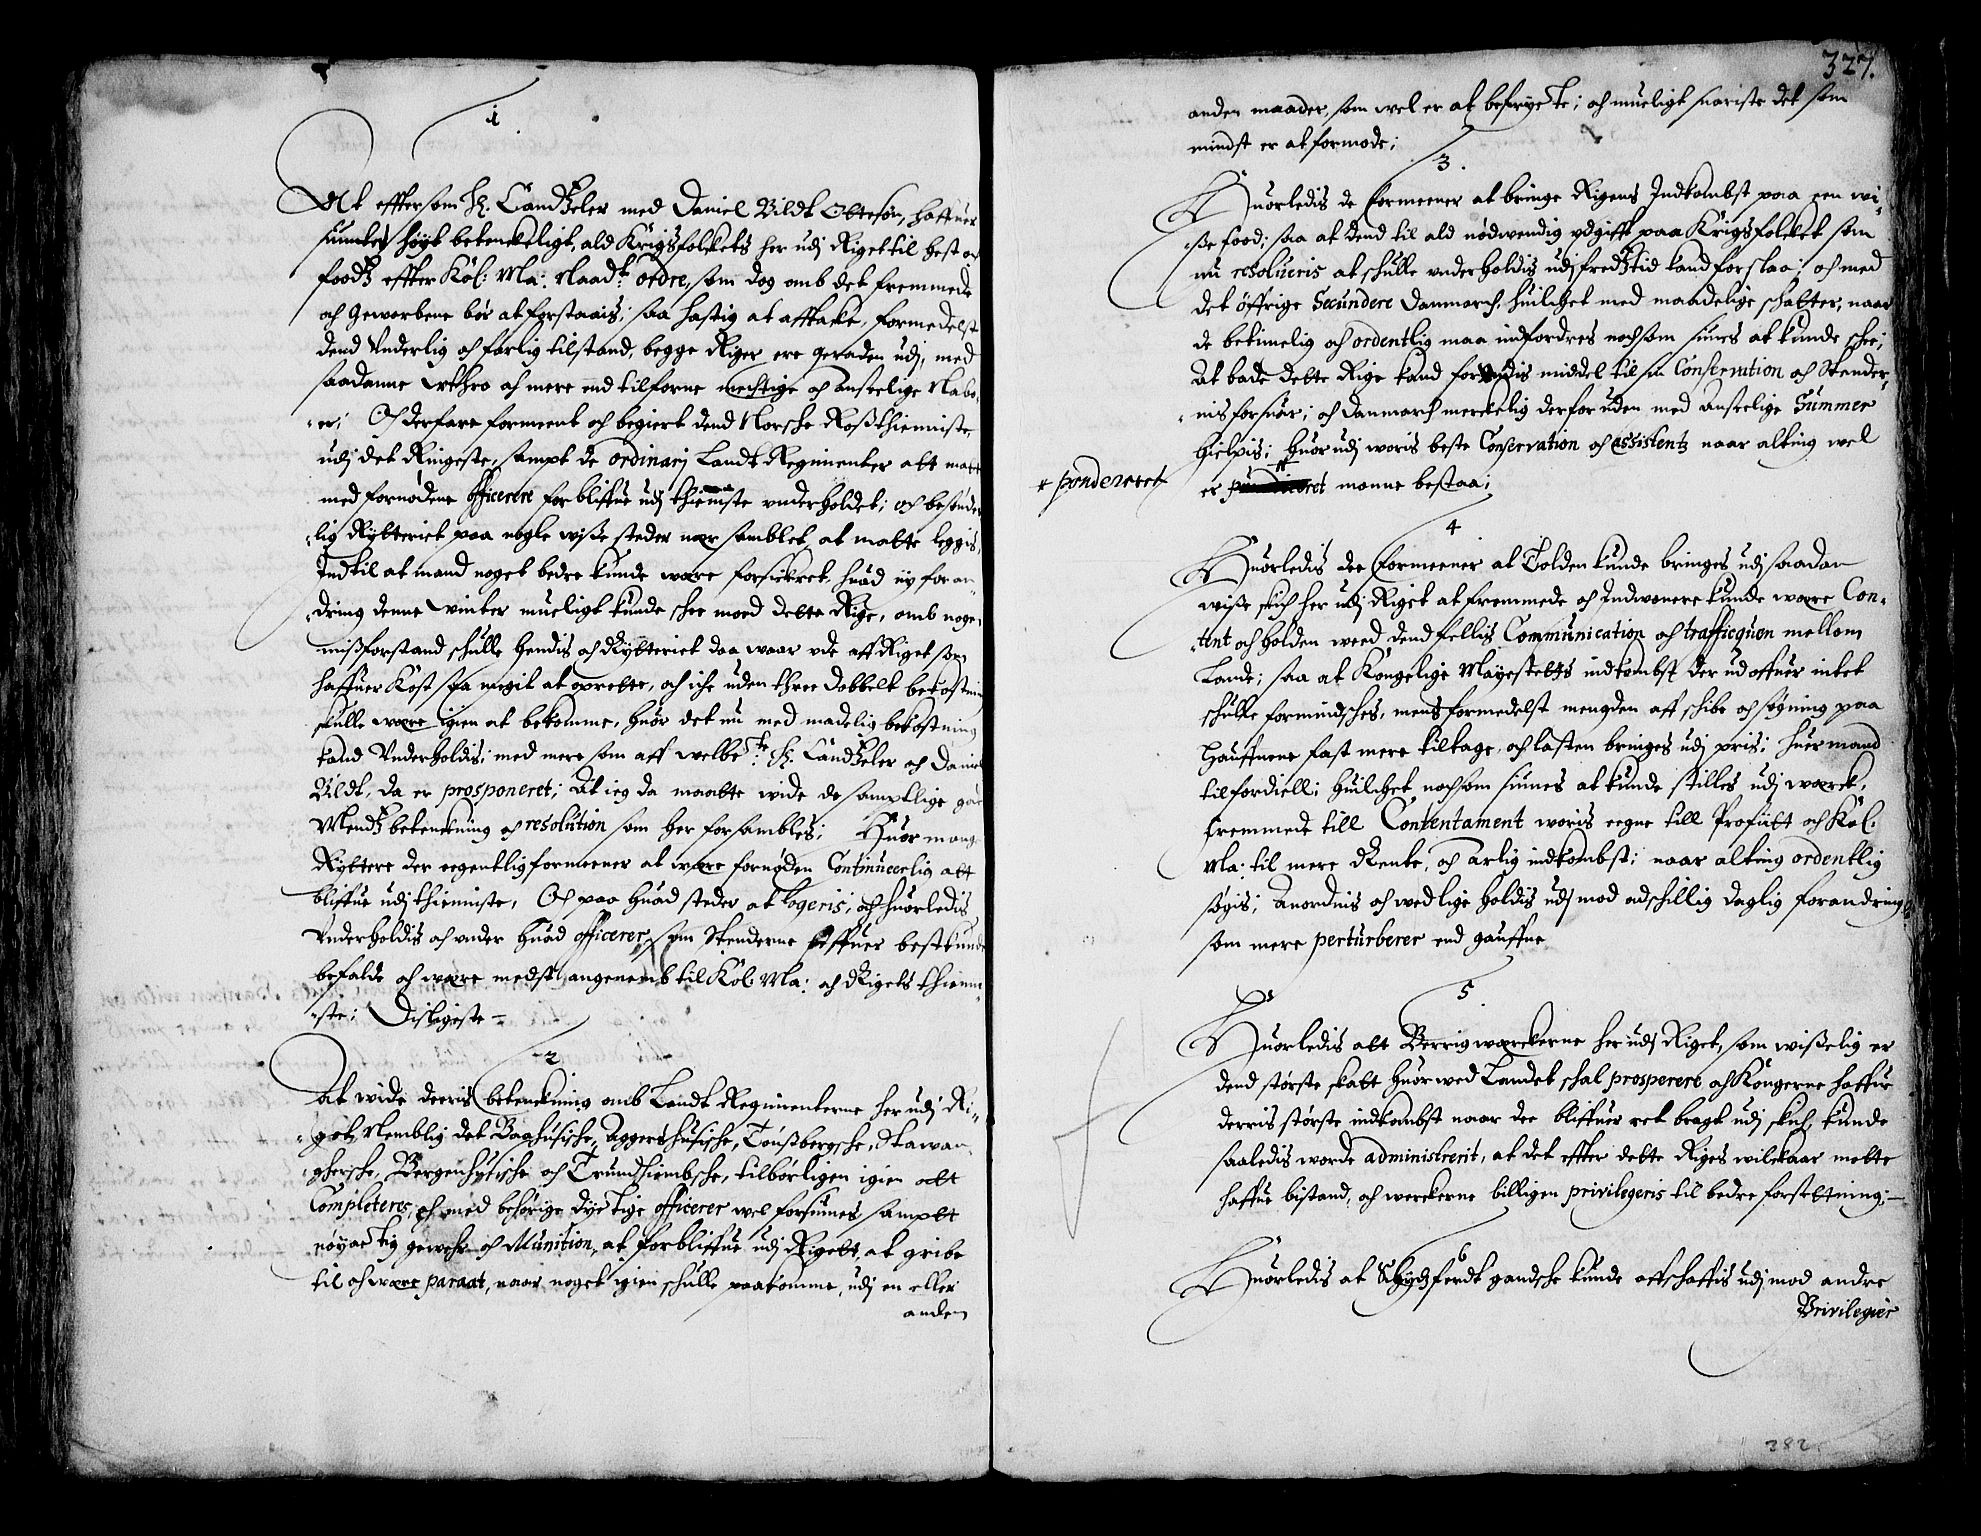 1
At efftersom H: Candtzeler med Daniel Bildt Ottesøn, haffuer
siuntes høyt betenckeligt, ald Krigsfolckets her udj Riget til hest och
foodtz effter Kol: Ma: Naadt: ordre, som dog omb det fremmede
och Geworbene bør at forstaais; saa hastig at afftacke, formedelst
dend Underlig och farlig tilstand, begge Riger ere geraden udj, med
saadanne och mere end tilforne mechtige och Anseelige Nabo-
-er; Och derfare formeent och begiert dend Norsche Roßthienniste,
udj det Ringeste, sampt de ordinarj Landt Regimenter alt matte
med fornødene Officerere forbliffue udj thienniste underholdet; och besønder-
-lig Rytteriet paa nogle wiße steder nær samblet at matte leggis,
Indtil at mand noget bedre kunde wære forsickret, huad ny foran-
-dring denne winter mueligt kunde schee med dette Rige, omb nogen
mißforstand schulle hendis och Rytteriet daa waar ude aff Riget som
haffuer Kost saa megit at oprette, och iche uden three dobbelt bekostning
skulle wære igien at bekomme, huor det nu med madelig bekostning
kand Underholdis; med mere som aff welbete: H: Candtzeler och Daniel
Bildt, da er prosponeret; At ieg da maatte wide de samptlige gode
Mendtz betenckning och resolution som her forsambles; Huor mange
Ryttere der eegentlig formeener at wære fornøden Continueerlig alt
bliffue udj thienniste, Och paa huad steder at logeris, och huorledis
Underholdis och under huad officerer, som Stenderne haffuer best kunde
befalde och wære medst angenemb til Kol: Ma: och Rigets thienni-
-ste; Disligeste -
2
At wide deeris betenckning omb Landt Regimenterne her udj Ri-
-get, Nemblig det Baahusische, Aggershusische, Tønßbergsche, Stawan-
-ghersche, Bergenhusische och Trundhiembsche, tilbørligen igien alt
Completeres, och med behørige dyctige officerer wel forsiunes sampt
nøyactig gewehr och Munition, at forbliffue udj Rigett, at gribe
til och wære paraat, naar noget igien schulle paakomme, udj en eller
anden
327.
anden maader, som wel er at befrycte; och mueligt snariste det som
mindst er at formode;
3
Huorledis de formeener at bringe Rigens Indkombst paa een wi-
-ße food; saa at dend til ald nødwendig udgifft paa Krigsfolcket som
nu resolueris at schulle underholdis udj fredtztid kand forslaa; och med
det øffrige Secundere Danmarch, huilchet med maadelige schatter, naar
de betimelig och ordentlig maa indfordres nochsom siunes at kunde schee;
At bade dette Rige kand forundis middel til sin Conservation och Stender-
-nis forsuar; och Danmarch merckelig derforuden med Anseelige Summer
hielpis; Huorudj woris beste Conservation och assistentz naar alting wel
er monne bestaa;
+ pondereret
4
Huorledis dee formeener at Tolden kunde bringes udj saadan
wiße skich her udj Riget at fremmede och Indwonere kunde wære Con-
-tent och holden weed dend fellis Communication och trafficquen mellom
Lande; saa at Kongelige Mayestetts indkombst der udoffuer intet
schulle formindsches, mens formedelst mengden aff schibe och søgning paa
Hauffnene fast mere tiltage, och lasten bringes udj pris; huermand
til fordiell; huilchet nochsom siunes at kunde stilles udj wærck,
fremmede till Contentament woris eegne till Profiitt och Kol:
Ma: til mere Rente, och Aarlig indkombst; naar alting ordentlig
søgis; Anordnis och wedlige holdis udj mod adschillig daglig forandring
som mere perturberer end gauffne
5
Huorledis alt Berrigwærckerne her udj Riget, som wißelig er
dend største skatt huorwed Landet schal prosperere och Kongerne haffue
derris største indkombst naar dee bliffuer ret bragt udj skich, kunde
saaledis worde administrerit, at det effter dette Riges wilckaar motte
haffue bistand, och werckerne billigen privilegeris til bedre forsettning;-
6
Huorledis at Schydtzferdt gandsche kunde affschaffis udj mod andre
Privilegier
282